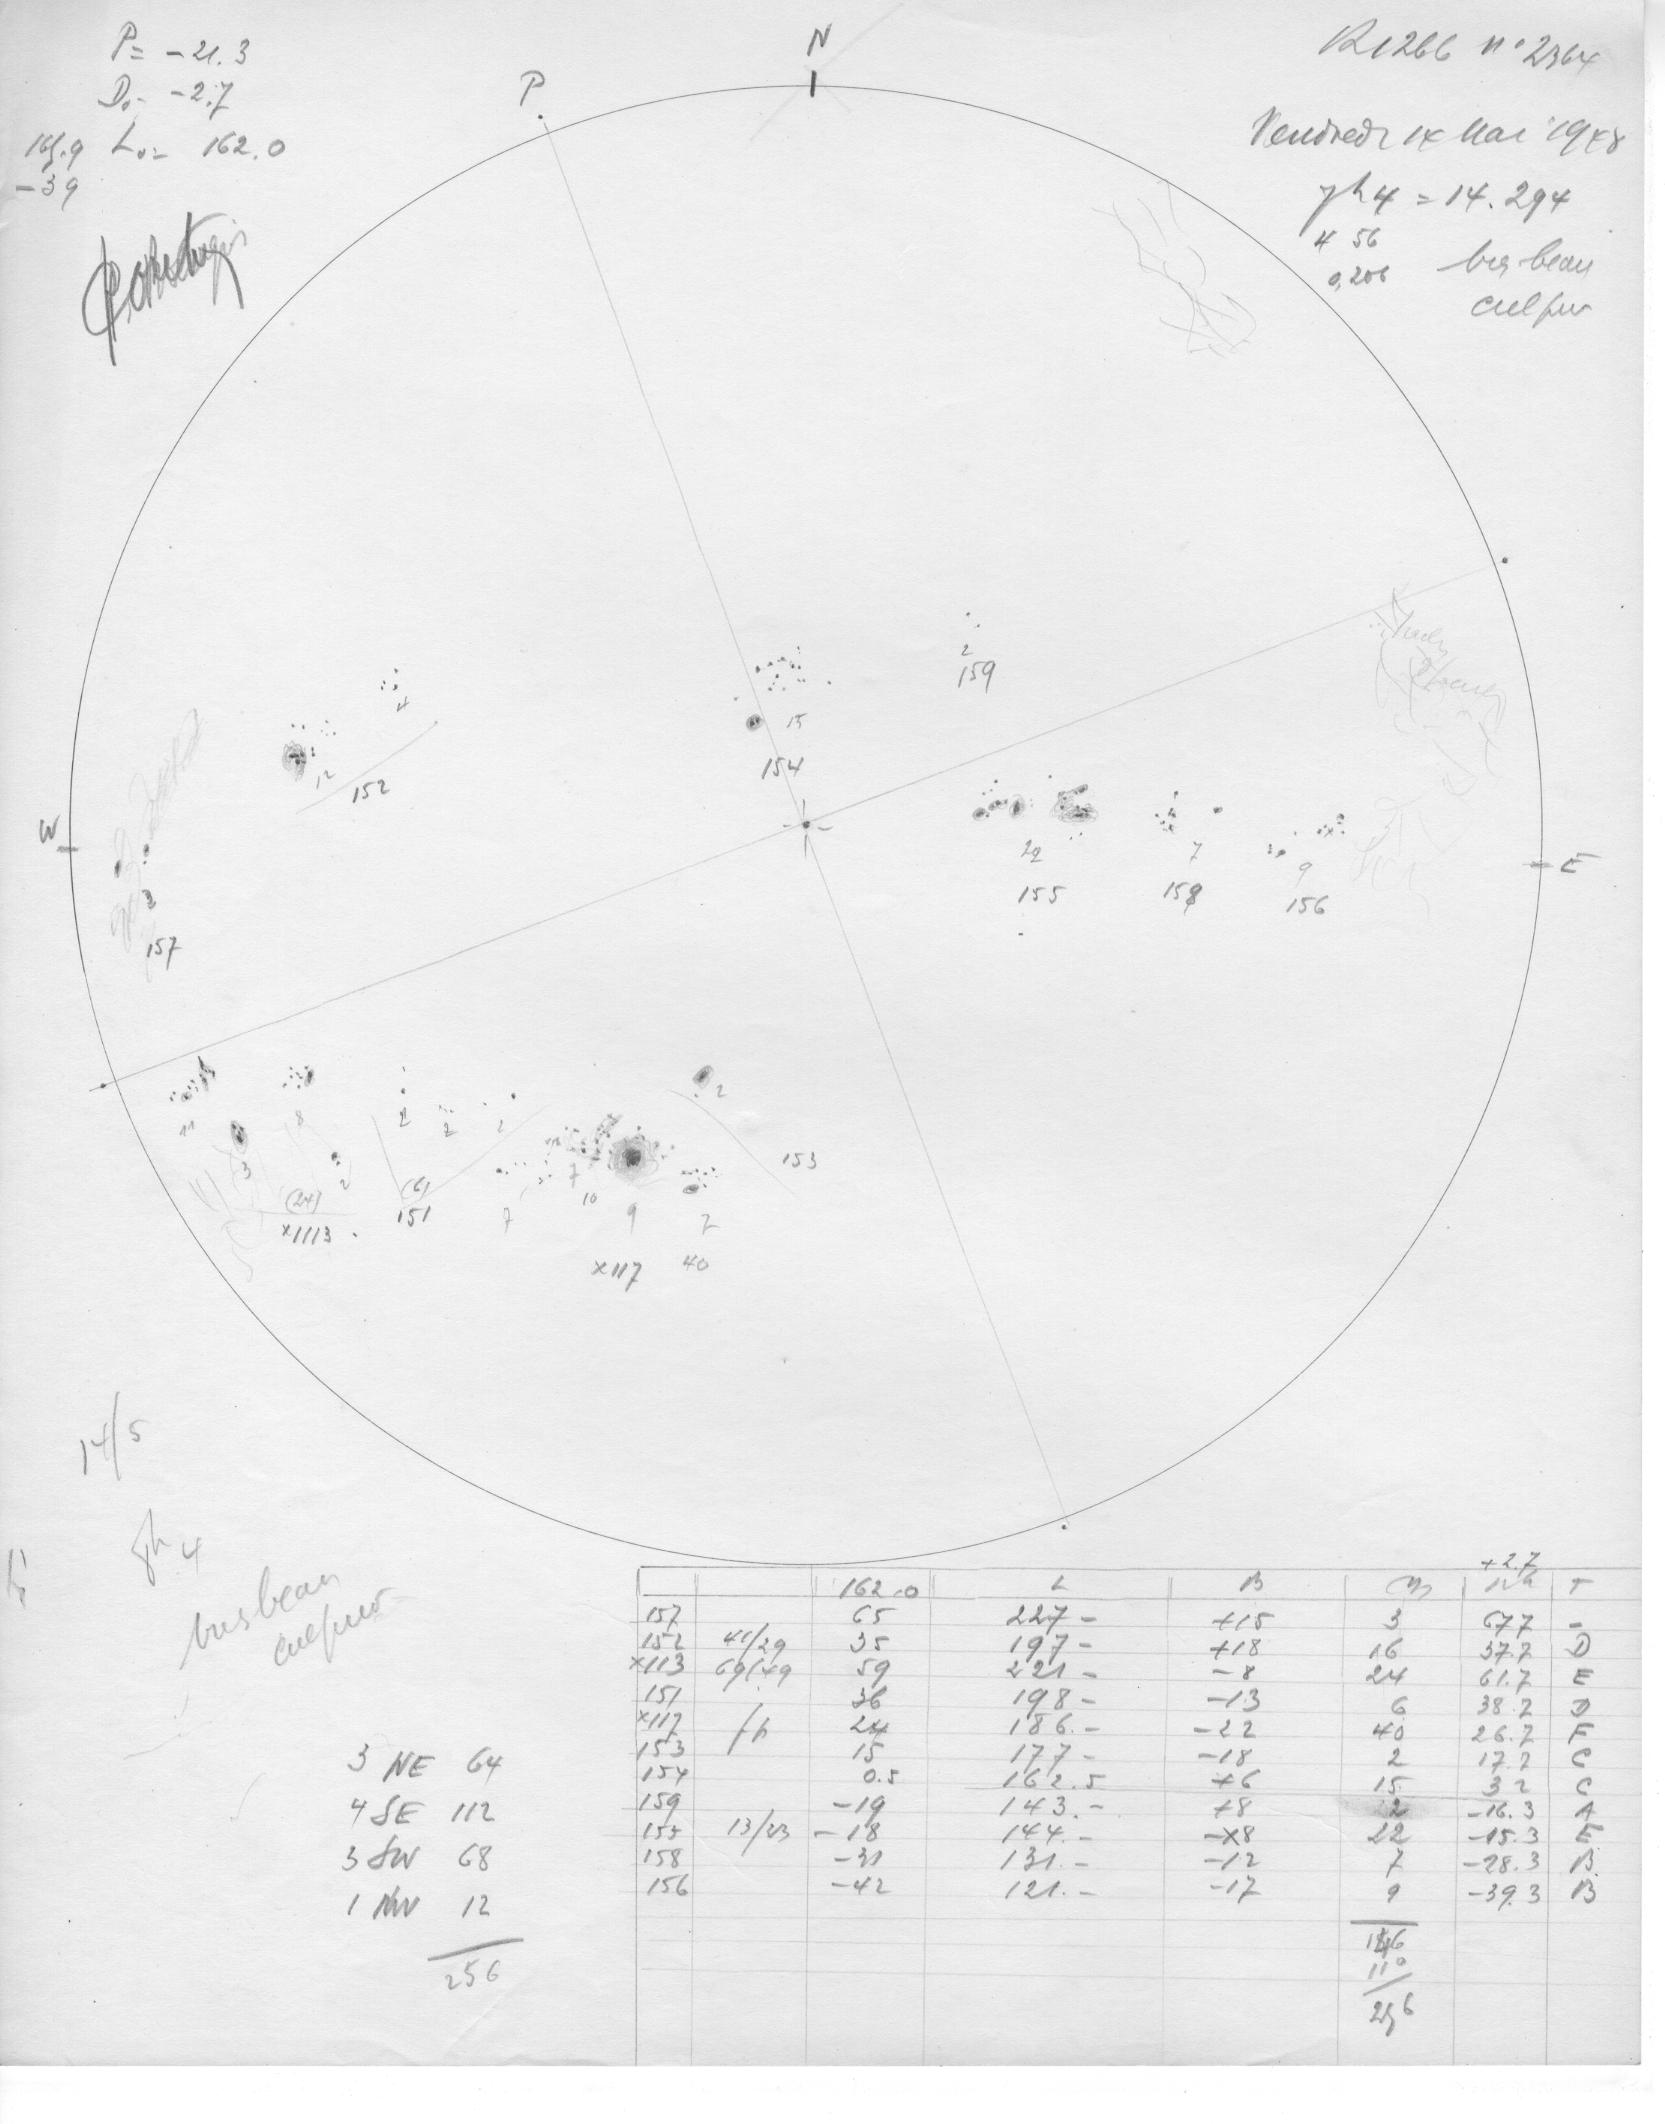 P= -21.3
D₀= -2.7
L₀= 162.0
-39
N
P
R1266 n° 2364
Vendredi 14 Mai 1948
7h4 = 14.294
4 56
0,206
tres beau
W
E
2
159
15
154
4
12
152
3
157
22
155
7
158
9
156
11
8
3
2
(24)
x1113
2
2
2
(6)
151
7
7
10
9
7
2
153
x117
40
14/5
7h 4
tres beau
3 NE 64
4 SE 112
3 SW 68
1 NW 12
256
+2.7
162.0 L B T
157 65 227- +15 3 67.7 -
152 41/29 35 197- +18 16 37.7 D
x113 69/49 59 221- -8 24 61.7 E
151 36 198- -13 6 38.7 D
x117 24 186.- -22 40 26.7 F
153 15 177- -18 2 17.7 C
154 0.5 162.5 +6 15 3.2 C
159 -19 143.- +8 2 -16.3 A
155 13/23 -18 144.- -8 22 -15.3 E
158 -31 131.- -12 7 -28.3 B
156 -42 121.- -17 9 -39.3 B
146
110
256